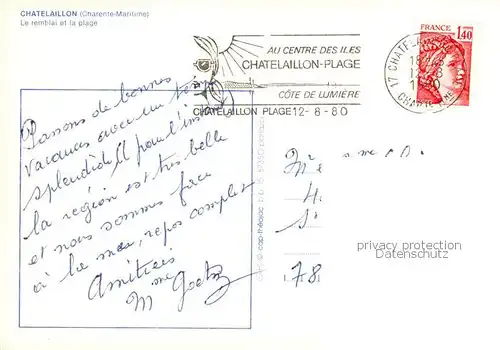 CHATELAILLON (Charente-Maritime)
Le remblai et la plage
AU CENTRE DES ILES
CHATELAILLON-PLAGE
CÔTE DE LUMIÈRE
CHATELAILLON PLAGE 12-8-80
FRANCE
1,40
Passons de bonnes
vacances avec un temps
splendide pour l'instant
la région est très belle
et nous sommes face
à la mer, repos complet
Amitiés
Mme
privacy protection
Datenschutz
78